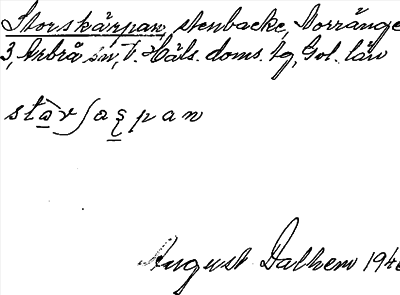 Storskärpan, stenbacke, Norränge
3, Arbrå sn, V. Häls. doms. tg, Gvl. län
stårʃaʂpan
August Dalhem 194